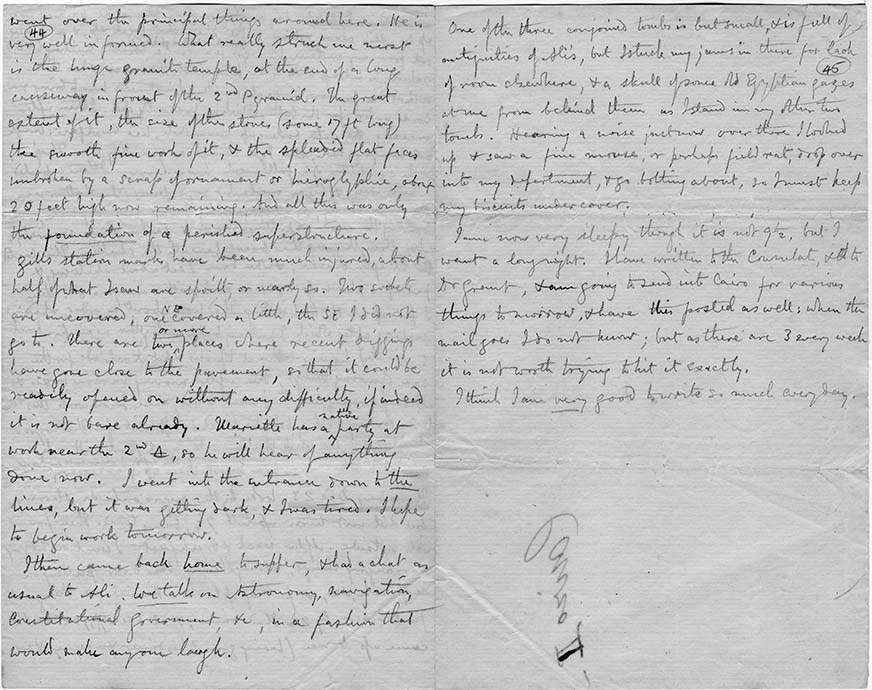 went over the principal things around here. He is
44
very well informed. What really struck me most
is the huge granite temple, at the end of a long
causeway in front of the 2nd Pyramid. The great
extent of it, the size of the stone, (some 17 ft long)
the smooth fine work of it, & the splendid flat faces
unbroken by a scrap of ornament or hieroglyphic, above
20 feet high now remaining. And all this was only
the foundation of a perished superstructure.
Gill's station marks have been much injured, about
half of what I saw are spoilt, or nearly so. Two sockets
are uncovered, one covered a little, the SE I did not
go to. There are two or more places where recent diggings
have gone close to the pavement, so that it could be
readily opened on without any difficulty, if indeed
it is not bare already. Mariette has a native party at
work near the 2nd Δ, so he will hear of anything
done now. I went into the entrance down to the
lines, but it was getting dark, & I was tired. I hope
to begin work tomorrow.
I then came back home to supper, & had a chat as
usual to Ali. We talk on Astronomy, navigation,
Constitutional government, &c, in a fashion that
would make anyone laugh.
One of the three conjoined tombs is but small, & is full of
antiquities of Ali's, but I stuck my jams in there for lack
45
of room elsewhere, & a skull of some old Egyptian gazes
at me from behind them as I stand in my other two
tombs. Hearing a noise just now over there I looked
up & saw a fine mouse, or perhaps field rat, drop over
into my department, & go bolting about, so I must keep
my biscuits under cover.
I am now very sleepy though it is not 9½, but I
want a long night. I have written to the Consulate, & to
Dr Grant, & am going to send into Cairo for various
things tomorrow, & have this posted as well; when the
mail goes I do not know; but as there are 3 every week
it is not worth trying to hit it exactly.
I think I am very good to write so much every day.